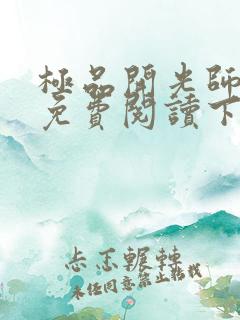 極品開光師
免費閱讀下
忐忑輾轉
未經同意禁止轉載